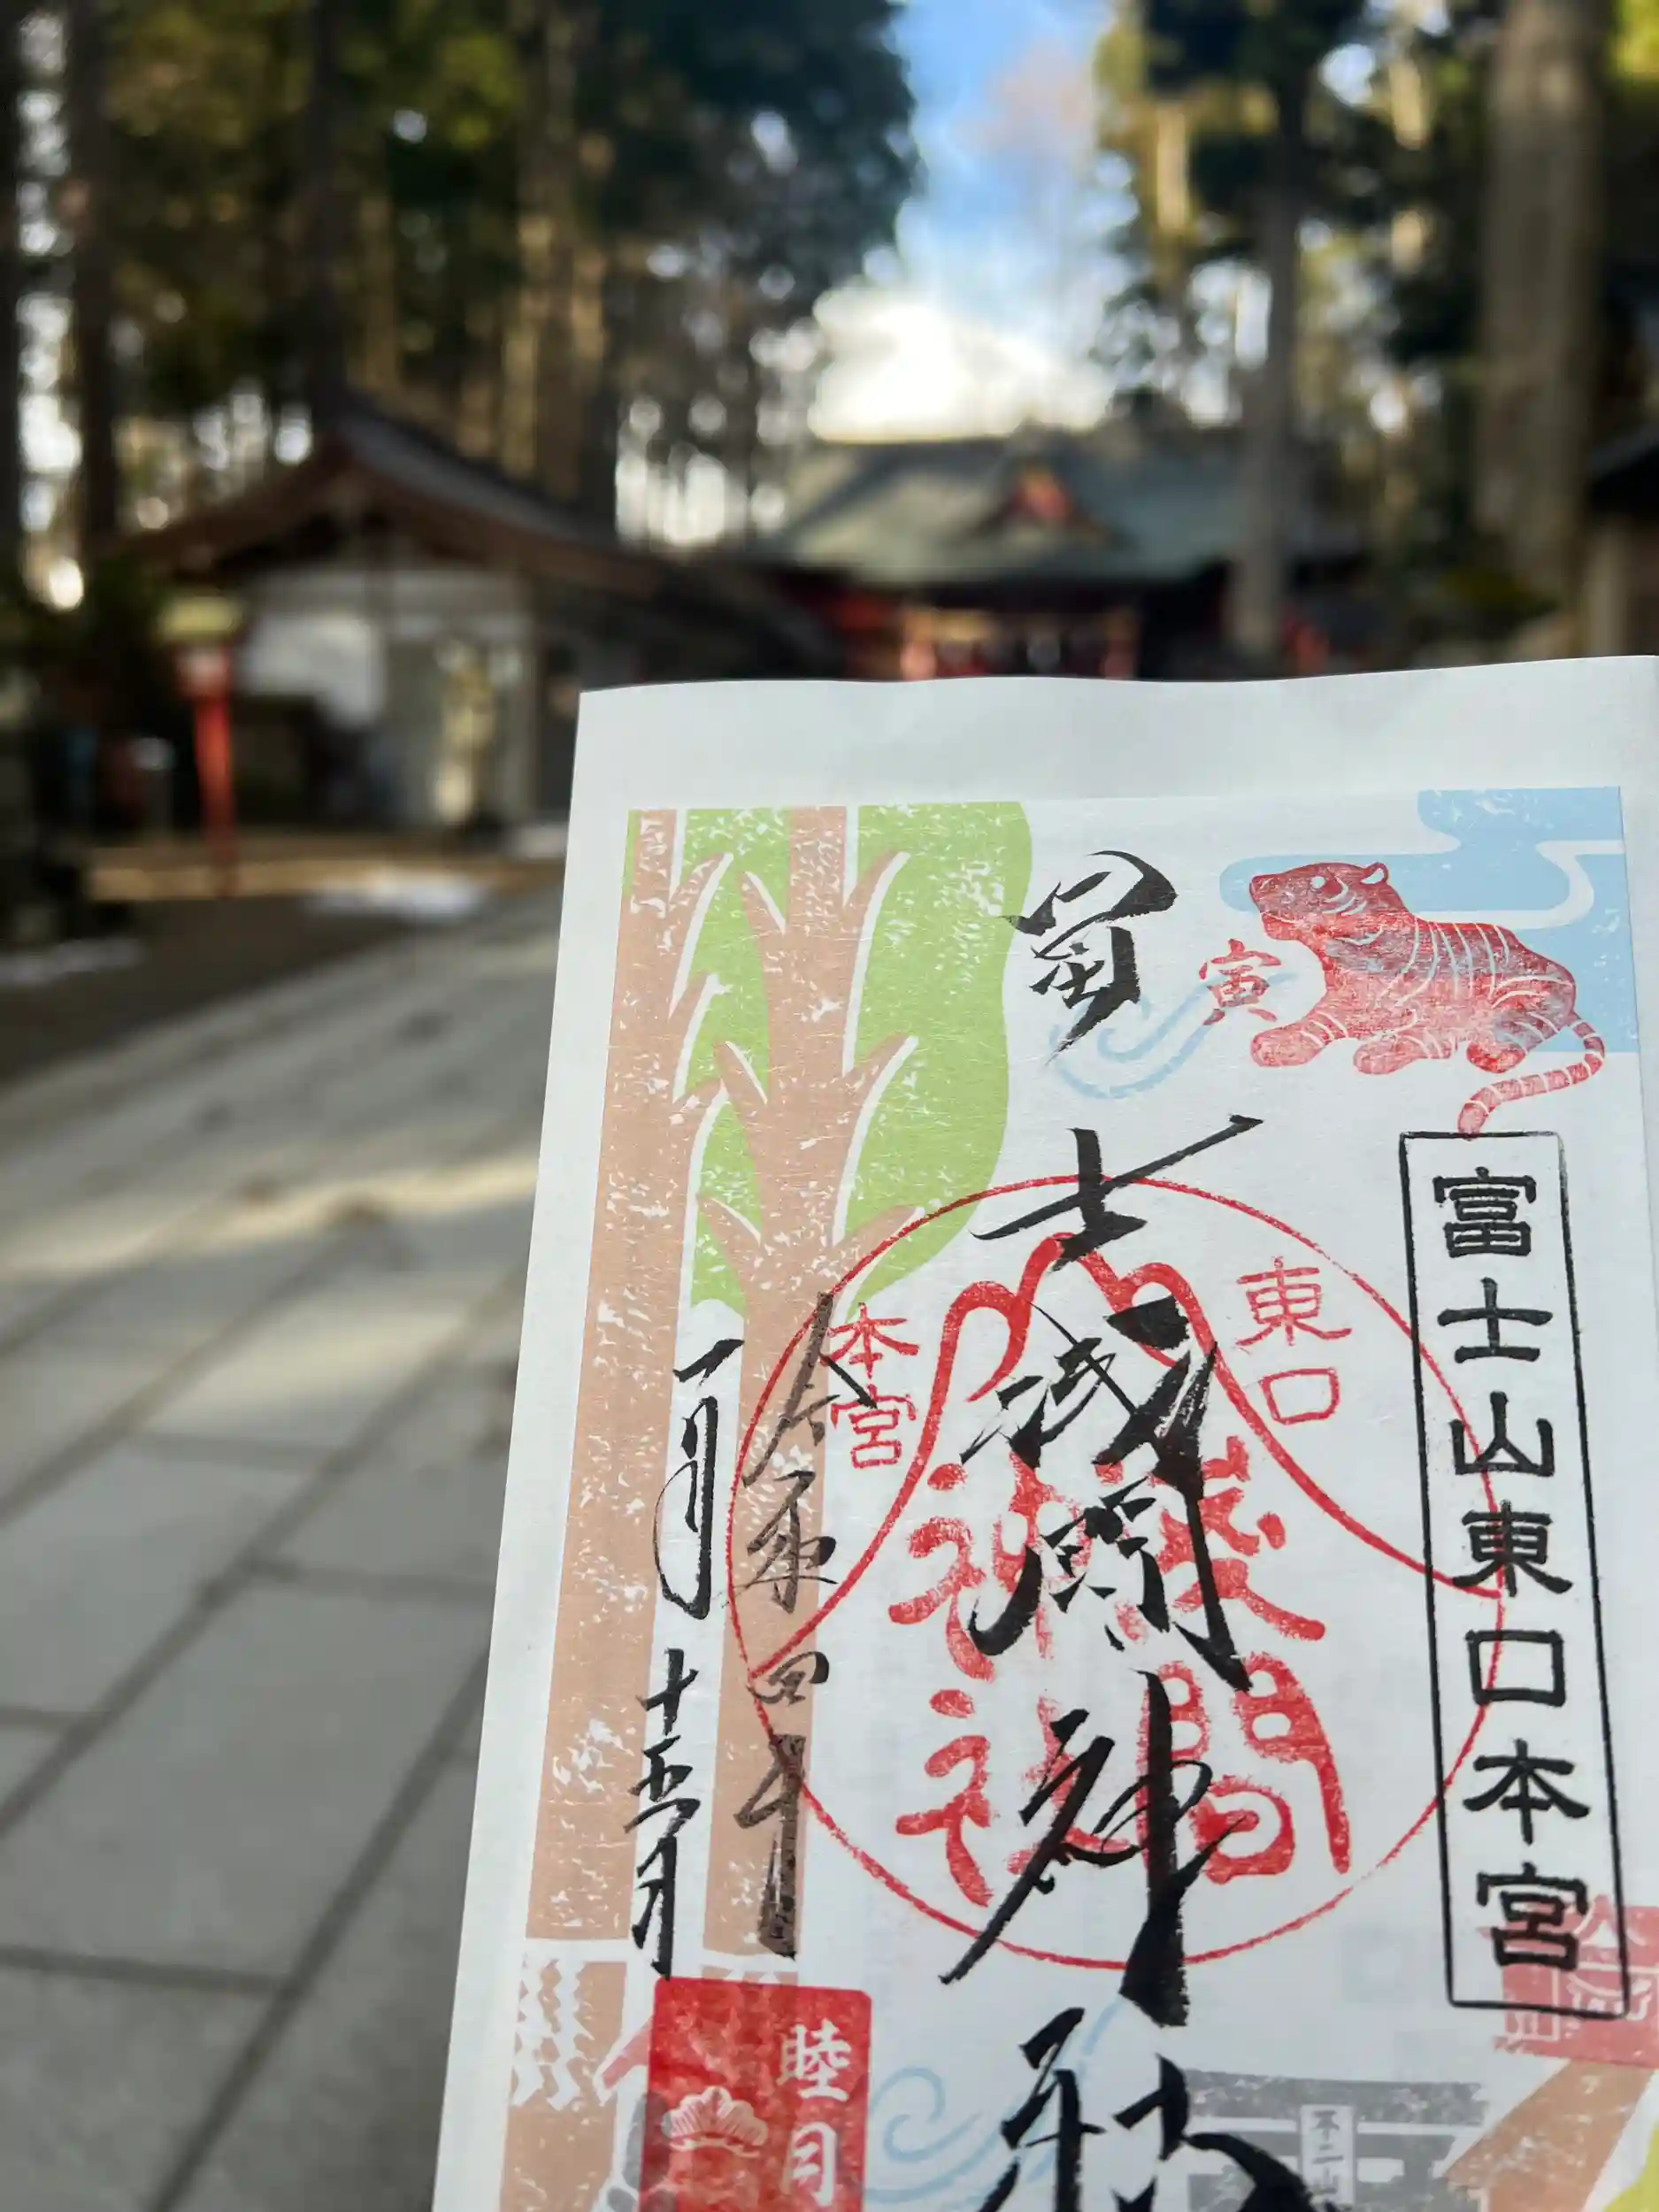 富士山東口本宮
寅
冨士浅間神社
東口
本宮
浅間
神社
令和四年
一月十五日
睦月
不二山